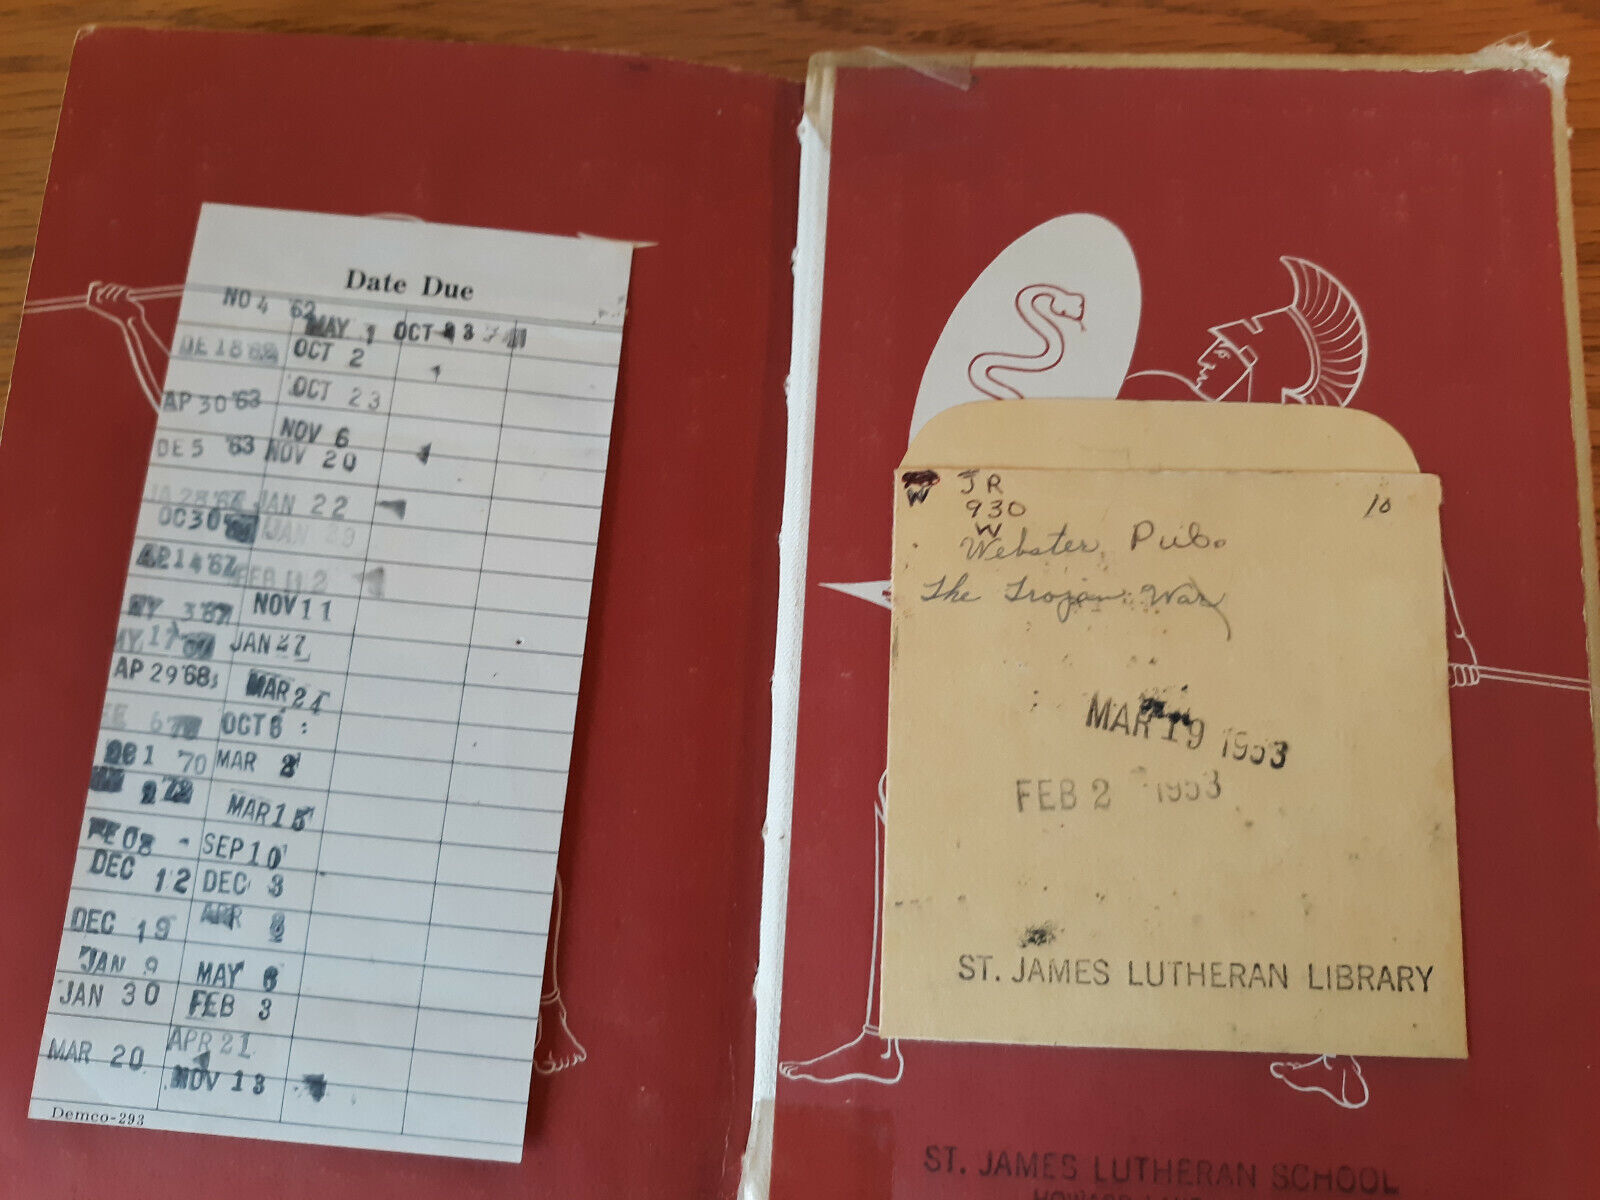 Date Due
NO 4 '62
DE 18 62
AP 30 '63
DE 5 '63
JA 28 '64
OC 30
AP 14 '67
MY 3 '67
MY 17
AP 29 '68
FE 6 70
70
DEC 12
DEC 19
JAN 9
JAN 30
MAR 20
MAY 1
OCT 2
OCT 23
NOV 6
NOV 20
JAN 22
JAN
FEB 12
NOV 11
JAN
MAR 24
OCT 8
MAR 2
MAR 15
SEP 10
DEC 3
APR
MAY 6
FEB 3
APR 21
NOV 13
OCT
Demco-293
W
JR
930
W
10
Webster Pub.
The Trojan War
MAR 19 1953
FEB 2 1953
ST. JAMES LUTHERAN LIBRARY
ST. JAMES LUTHERAN SCHOOL